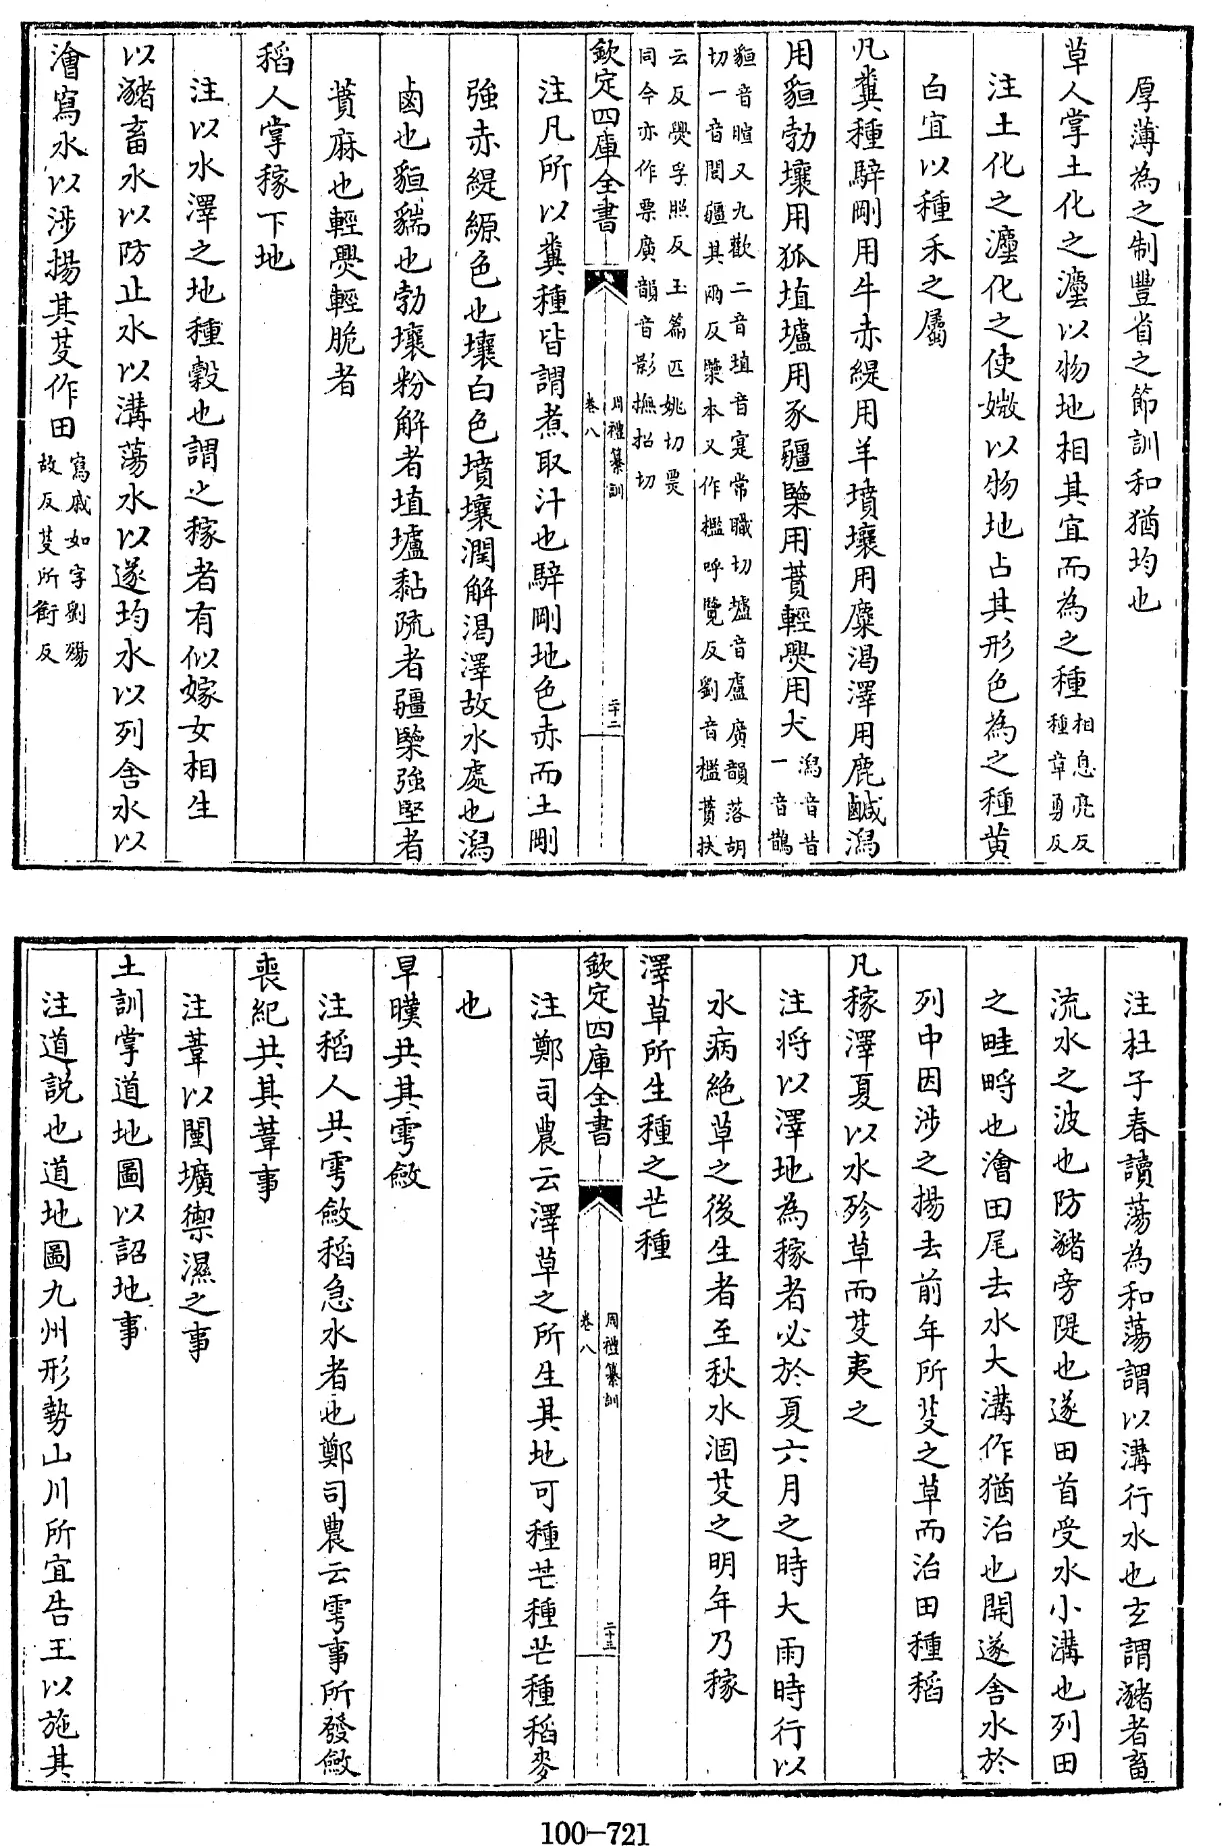 厚薄為之制豐省之節訓和猶均也
草人掌土化之灋以物地相其宜而為之種相息亮反種章勇反
注土化之灋化之使媺以物地占其形色為之種黄
白宜以種禾之屬
凡糞種騂剛用牛赤緹用羊墳壤用麋渴澤用鹿鹹潟
用貆勃壤用狐埴壚用豕疆㯺用蕡輕爂用犬潟音昔一音鵲
貆音暄又九歡二音埴音寔常職切壚音盧廣韻落胡
切一音閭疆其兩反㯺本又作檻呼覽反劉音檻蕡扶
云反爂孚照反玉篇匹姚切㷼
同今亦作票廣韻音影撫招切
欽定四庫全書
周禮纂訓
卷八
二十二
注凡所以糞種皆謂煮取汁也騂剛地色赤而土剛
強赤緹縓色也壤白色墳壤潤解渴澤故水處也潟
鹵也貆貒也勃壤粉解者埴壚黏疏者疆㯺強堅者
蕡麻也輕爂輕脆者
稻人掌稼下地
注以水澤之地種穀也謂之稼者有似嫁女相生
以瀦畜水以防止水以溝蕩水以遂均水以列舍水以
澮寫水以涉揚其芟作田寫戚如字劉殤故反芟所銜反
注杜子春讀蕩為和蕩謂以溝行水也玄謂瀦者畜
流水之波也防瀦旁隄也遂田首受水小溝也列田
之畦㽟也澮田尾去水大溝作猶治也開遂舍水於
列中因涉之揚去前年所芟之草而治田種稻
凡稼澤夏以水殄草而芟夷之
注將以澤地為稼者必於夏六月之時大雨時行以
水病絶草之後生者至秋水涸芟之明年乃稼
澤草所生種之芒種
欽定四庫全書
周禮纂訓
卷八
二十三
注鄭司農云澤草之所生其地可種芒種芒種稻麥
也
旱暵共其雩斂
注稻人共雩斂稻急水者也鄭司農云雩事所發斂
喪紀共其葦事
注葦以闉壙禦濕之事
土訓掌道地圖以詔地事
注道説也道地圖九州形勢山川所宜告王以施其
100-721